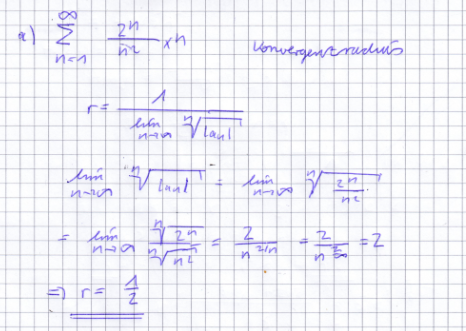 a) ∑_{n=1}^{∞} 2^n/n^2 x^n Konvergenzradius
r = 1/(lim_{n→∞} ⁿ√|a_n|)
lim_{n→∞} ⁿ√|a_n| = lim_{n→∞} ⁿ√(2^n/n^2)
= lim_{n→∞} ⁿ√(2^n)/ⁿ√(n^2) = 2/n^{2/n} = 2/n^{2/∞} = 2
⇒ r = 1/2